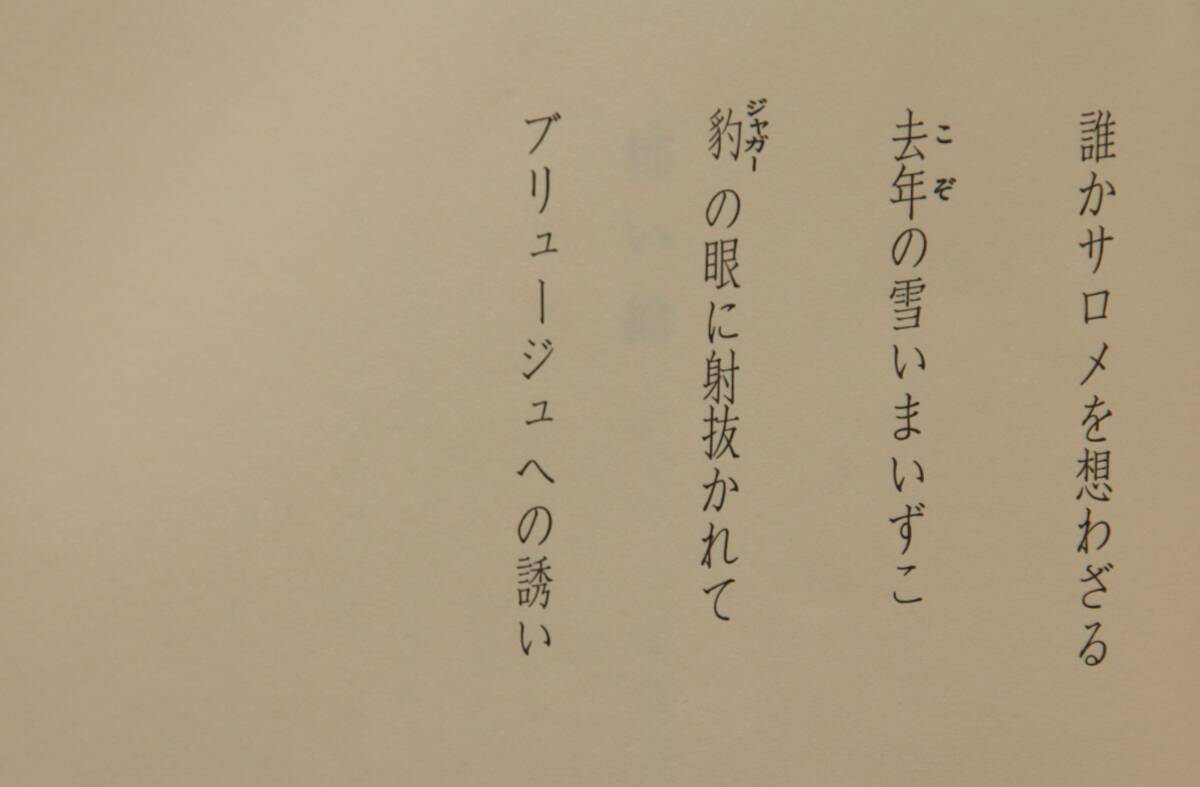 誰かサロメを想わざる
去年の雪いまいずこ
こぞ
豹の眼に射抜かれて
ジャガー
ブリュージュへの誘い